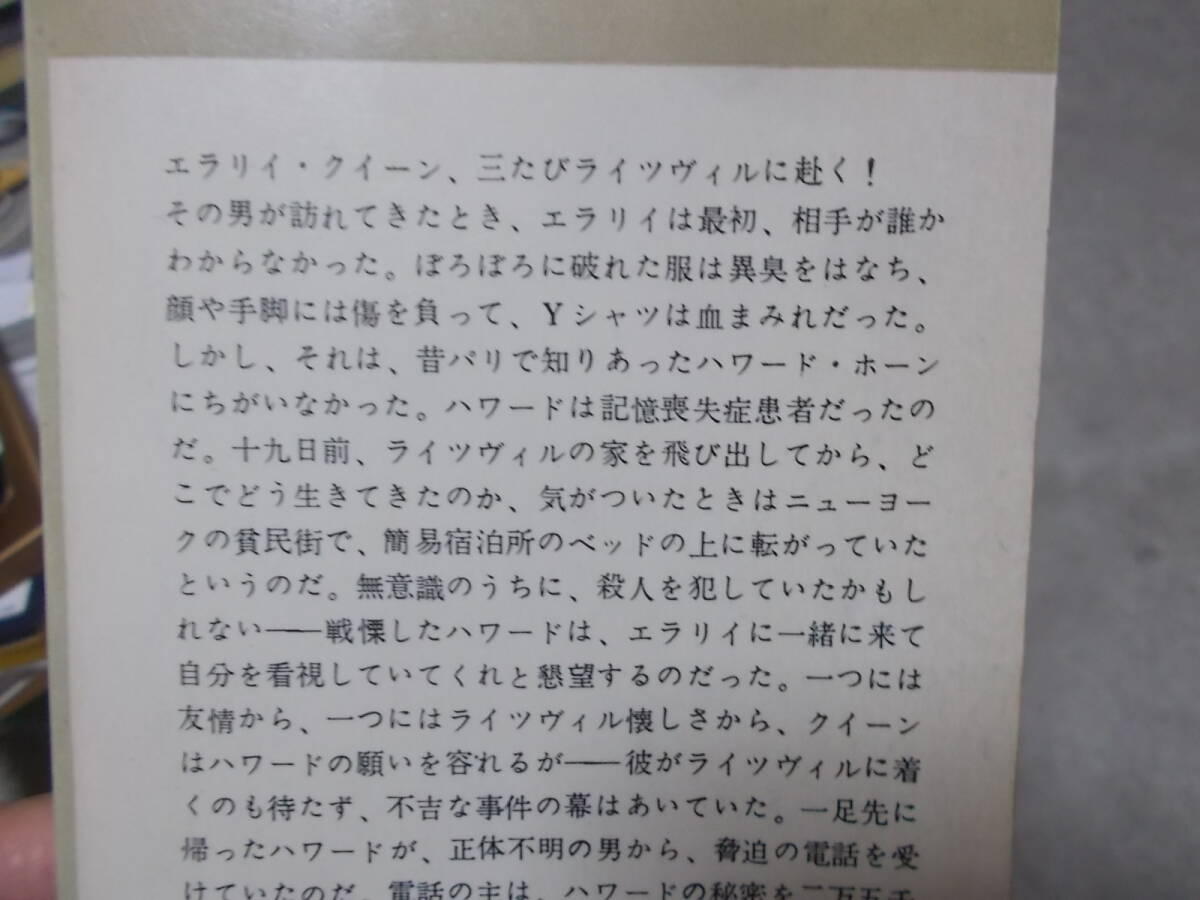 エラリイ・クイーン、三たびライツヴィルに赴く！
その男が訪れてきたとき、エラリイは最初、相手が誰か
わからなかった。ぼろぼろに破れた服は異臭をはなち、
顔や手脚には傷を負って、Yシャツは血まみれだった。
しかし、それは、昔パリで知りあったハワード・ホーン
にちがいなかった。ハワードは記憶喪失症患者だったの
だ。十九日前、ライツヴィルの家を飛び出してから、ど
こでどう生きてきたのか、気がついたときはニューヨー
クの貧民街で、簡易宿泊所のベッドの上に転がっていた
というのだ。無意識のうちに、殺人を犯していたかもし
れない――戦慄したハワードは、エラリイに一緒に来て
自分を看視していてくれと懇望するのだった。一つには
友情から、一つにはライツヴィル懐しさから、クイーン
はハワードの願いを容れるが――彼がライツヴィルに着
くのも待たず、不吉な事件の幕はあいていた。一足先に
帰ったハワードが、正体不明の男から、脅迫の電話を受
けていたのだ。電話の主は、ハワードの秘密を二万五千